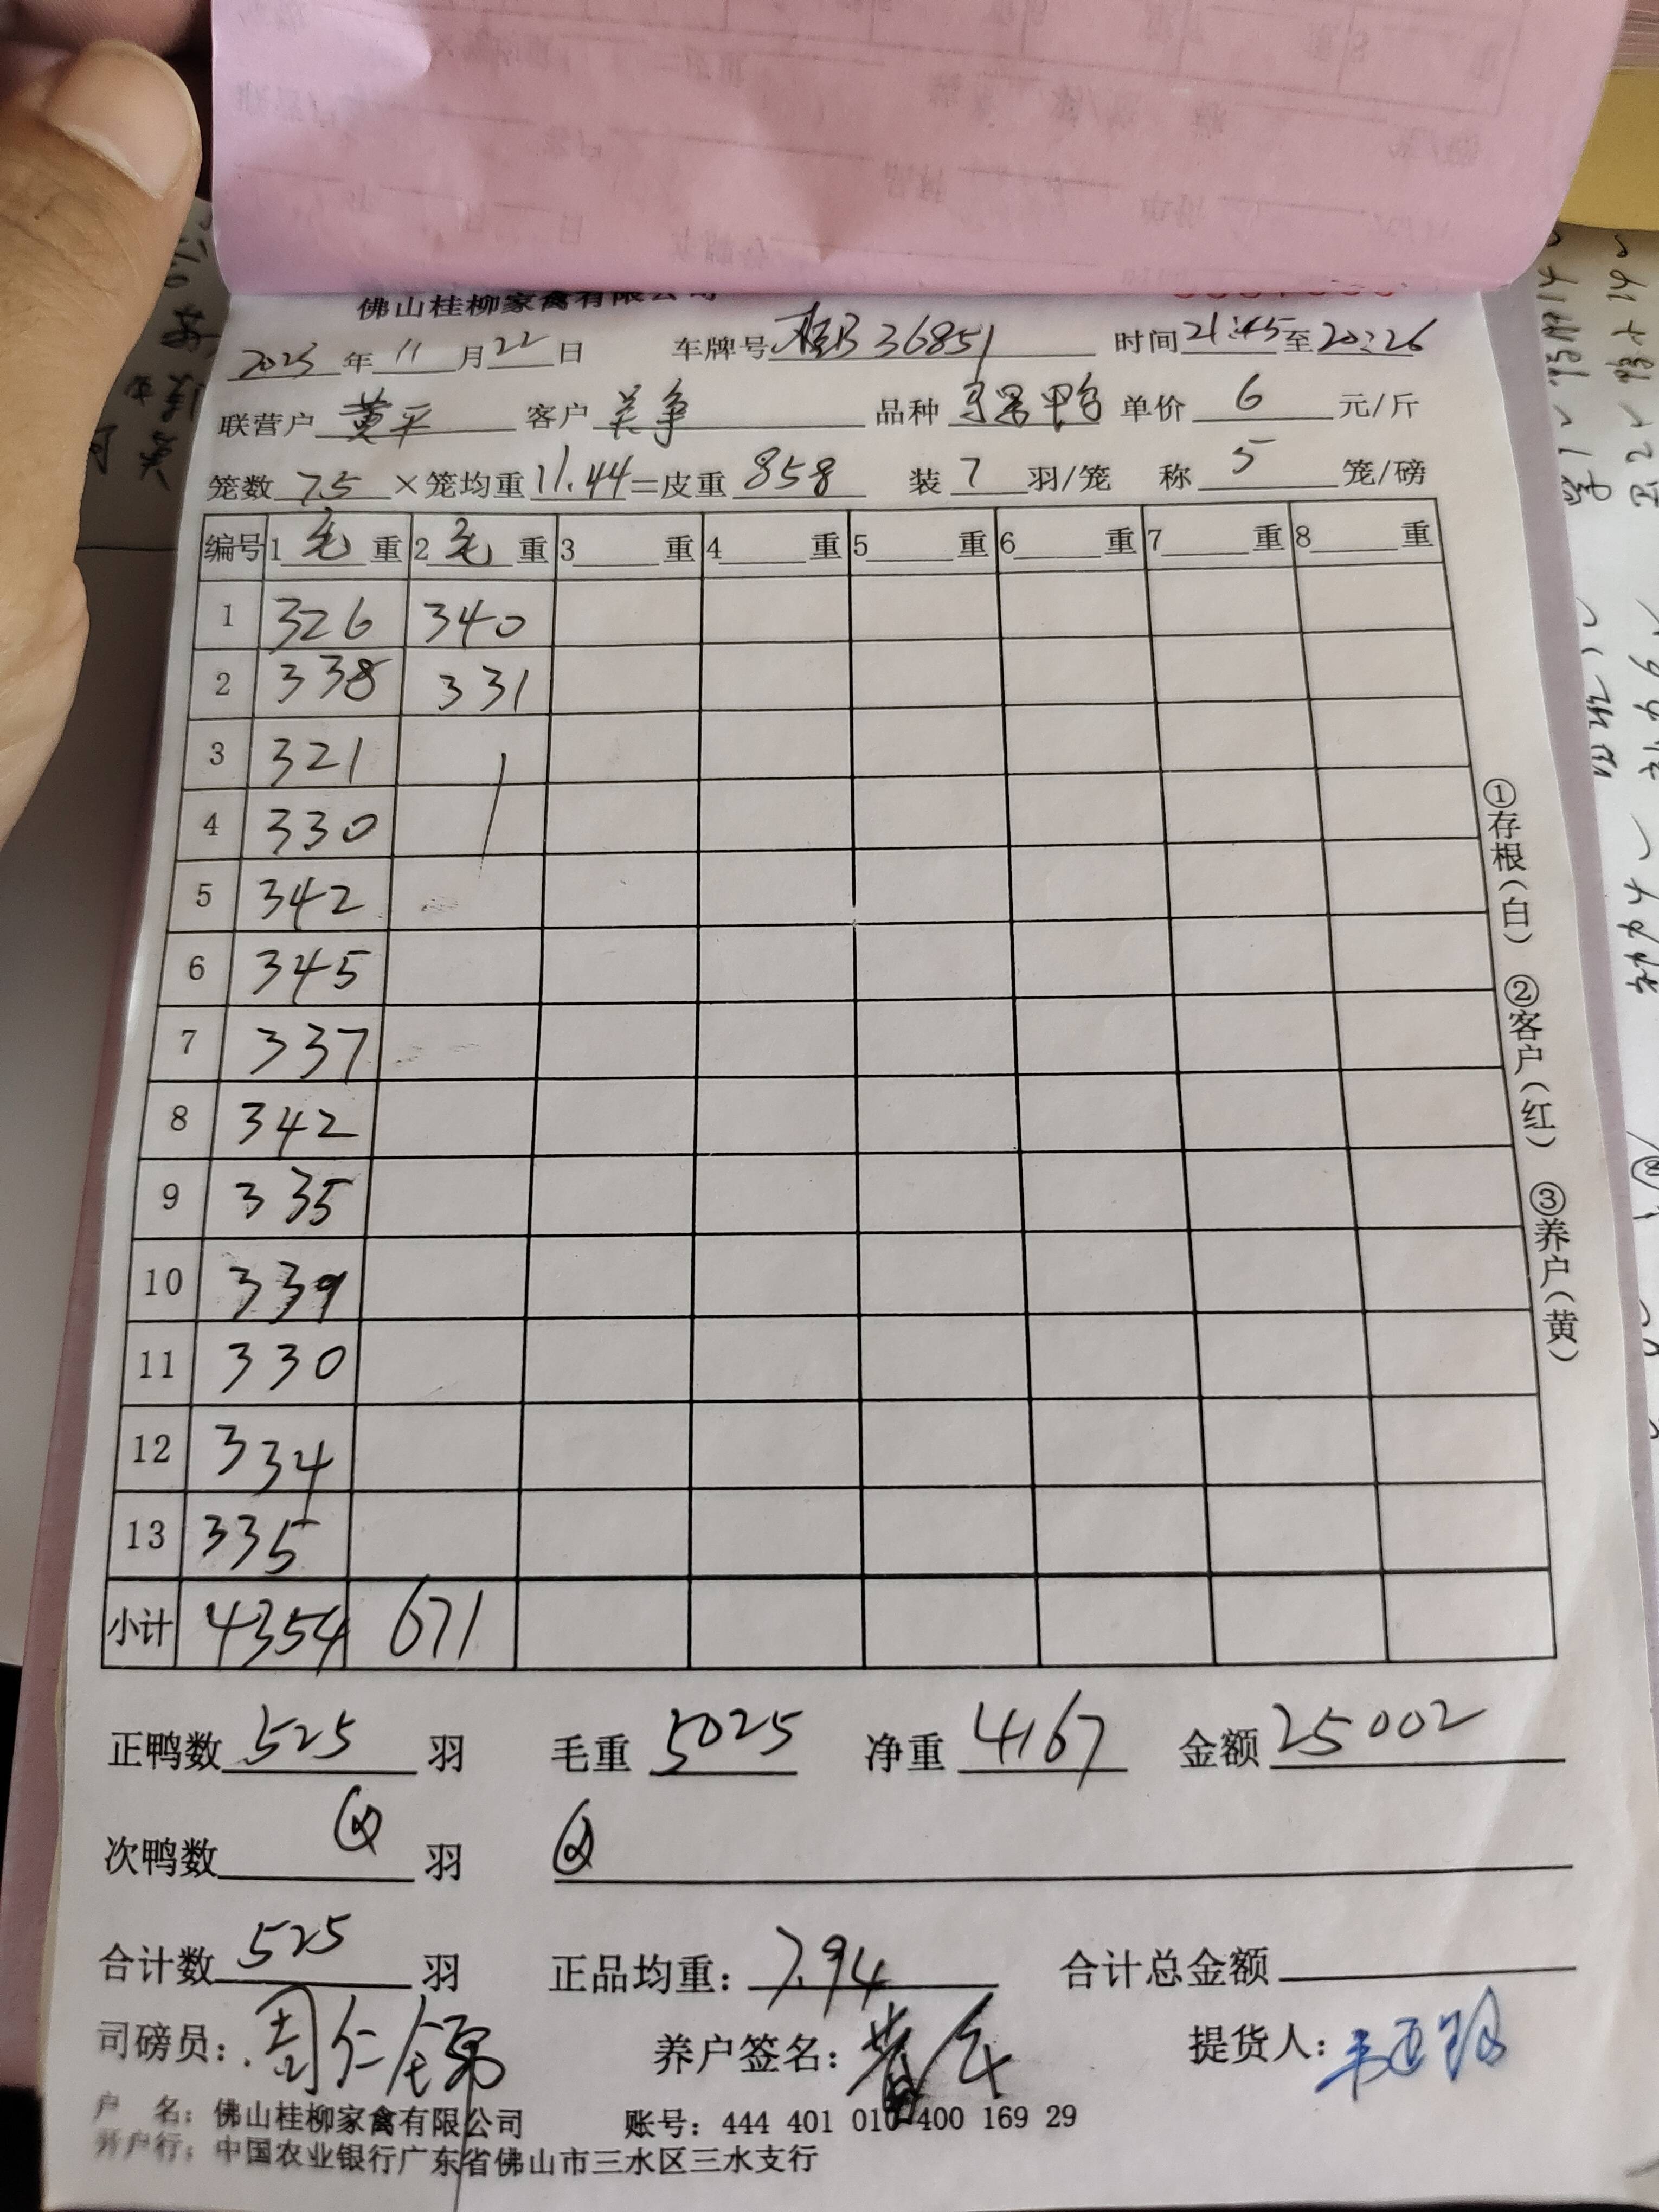 佛山桂柳家禽有限公司
2025年11月22日 车牌号桂B36851 时间21:45至20:26
联营户 黄平 客户 品种 鸭 单价 6 元/斤
笼数 75 ×笼均重 11.44=皮重 858 装 7 羽/笼 称 5 笼/磅
编号 1 毛 重 2 毛 重 3 重 4 重 5 重 6 重 7 重 8 重
1 326 340
2 338 331
3 321
4 330
5 342
6 345
7 337
8 342
9 335
10 339
11 330
12 334
13 335
小计 4354 671
正鸭数 525 羽 毛重 5025 净重 4167 金额 25002
次鸭数 羽
合计数 525 羽 正品均重：7.94 合计总金额
司磅员： 养户签名： 提货人：
户 名：佛山桂柳家禽有限公司 账号：444 401 010 400 169 29
开户行：中国农业银行广东省佛山市三水区三水支行
①存根（白） ②客户（红） ③养户（黄）